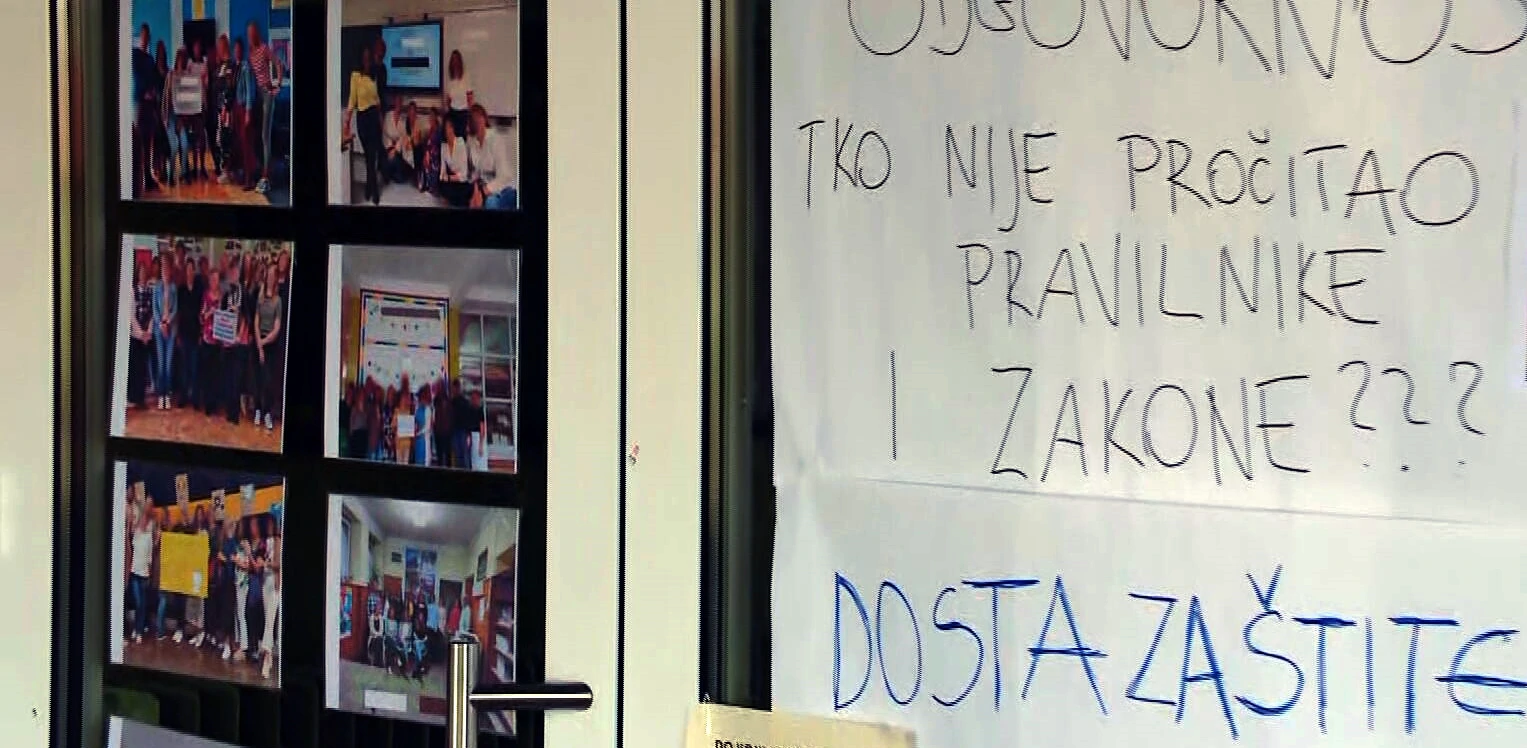 ODGOVORNOS
TKO NIJE PROČITAO
PRAVILNIKE
I ZAKONE???
DOSTA ZAŠTITE